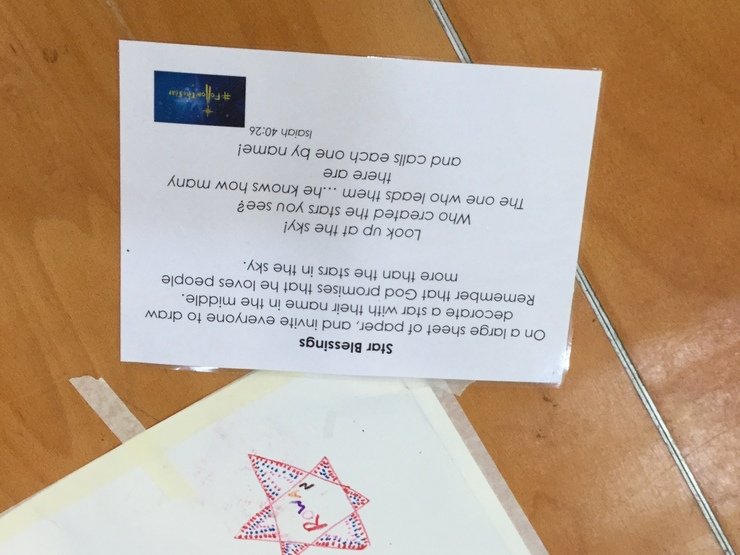 Star Blessings
On a large sheet of paper, and invite everyone to draw
decorate a star with their name in the middle.
Remember that God promises that he loves people
more than the stars in the sky.
Look up at the sky!
Who created the stars you see?
The one who leads them ...he knows how many
there are
and calls each one by name!
Isaiah 40:26
#FollowTheStar
ROWAN